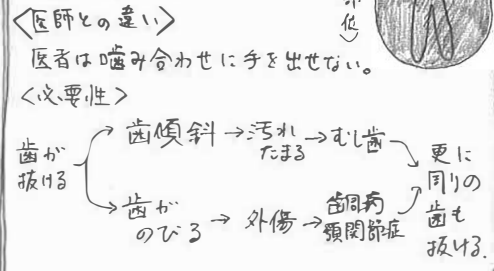 <医師との違い>
医者は噛み合わせに手を出せない。
<必要性>
歯が
抜ける
歯傾斜→汚れ
たまる→むし歯
歯が
のびる→外傷→歯周病
顎関節症
更に
周りの
歯も
抜ける.